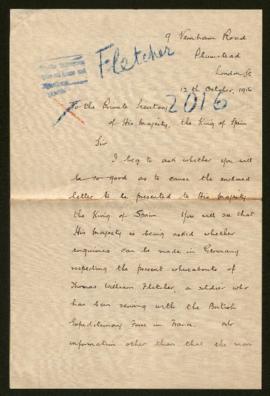 9 Road
Plumstead
London SE
12th October, 1916
Fletcher
2016
To the Private Secretary
of His Majesty, the King of Spain
Sir
I beg to ask whether you will
be so good as to cause the enclosed
letter to be presented to His Majesty
the King of Spain You will see that
His Majesty is being asked whether
enquiries can be made in Germany
respecting the present whereabouts of
Thomas William Fletcher, a soldier who
has been serving with the British
Expeditionary Force in France. No
information other than that the man